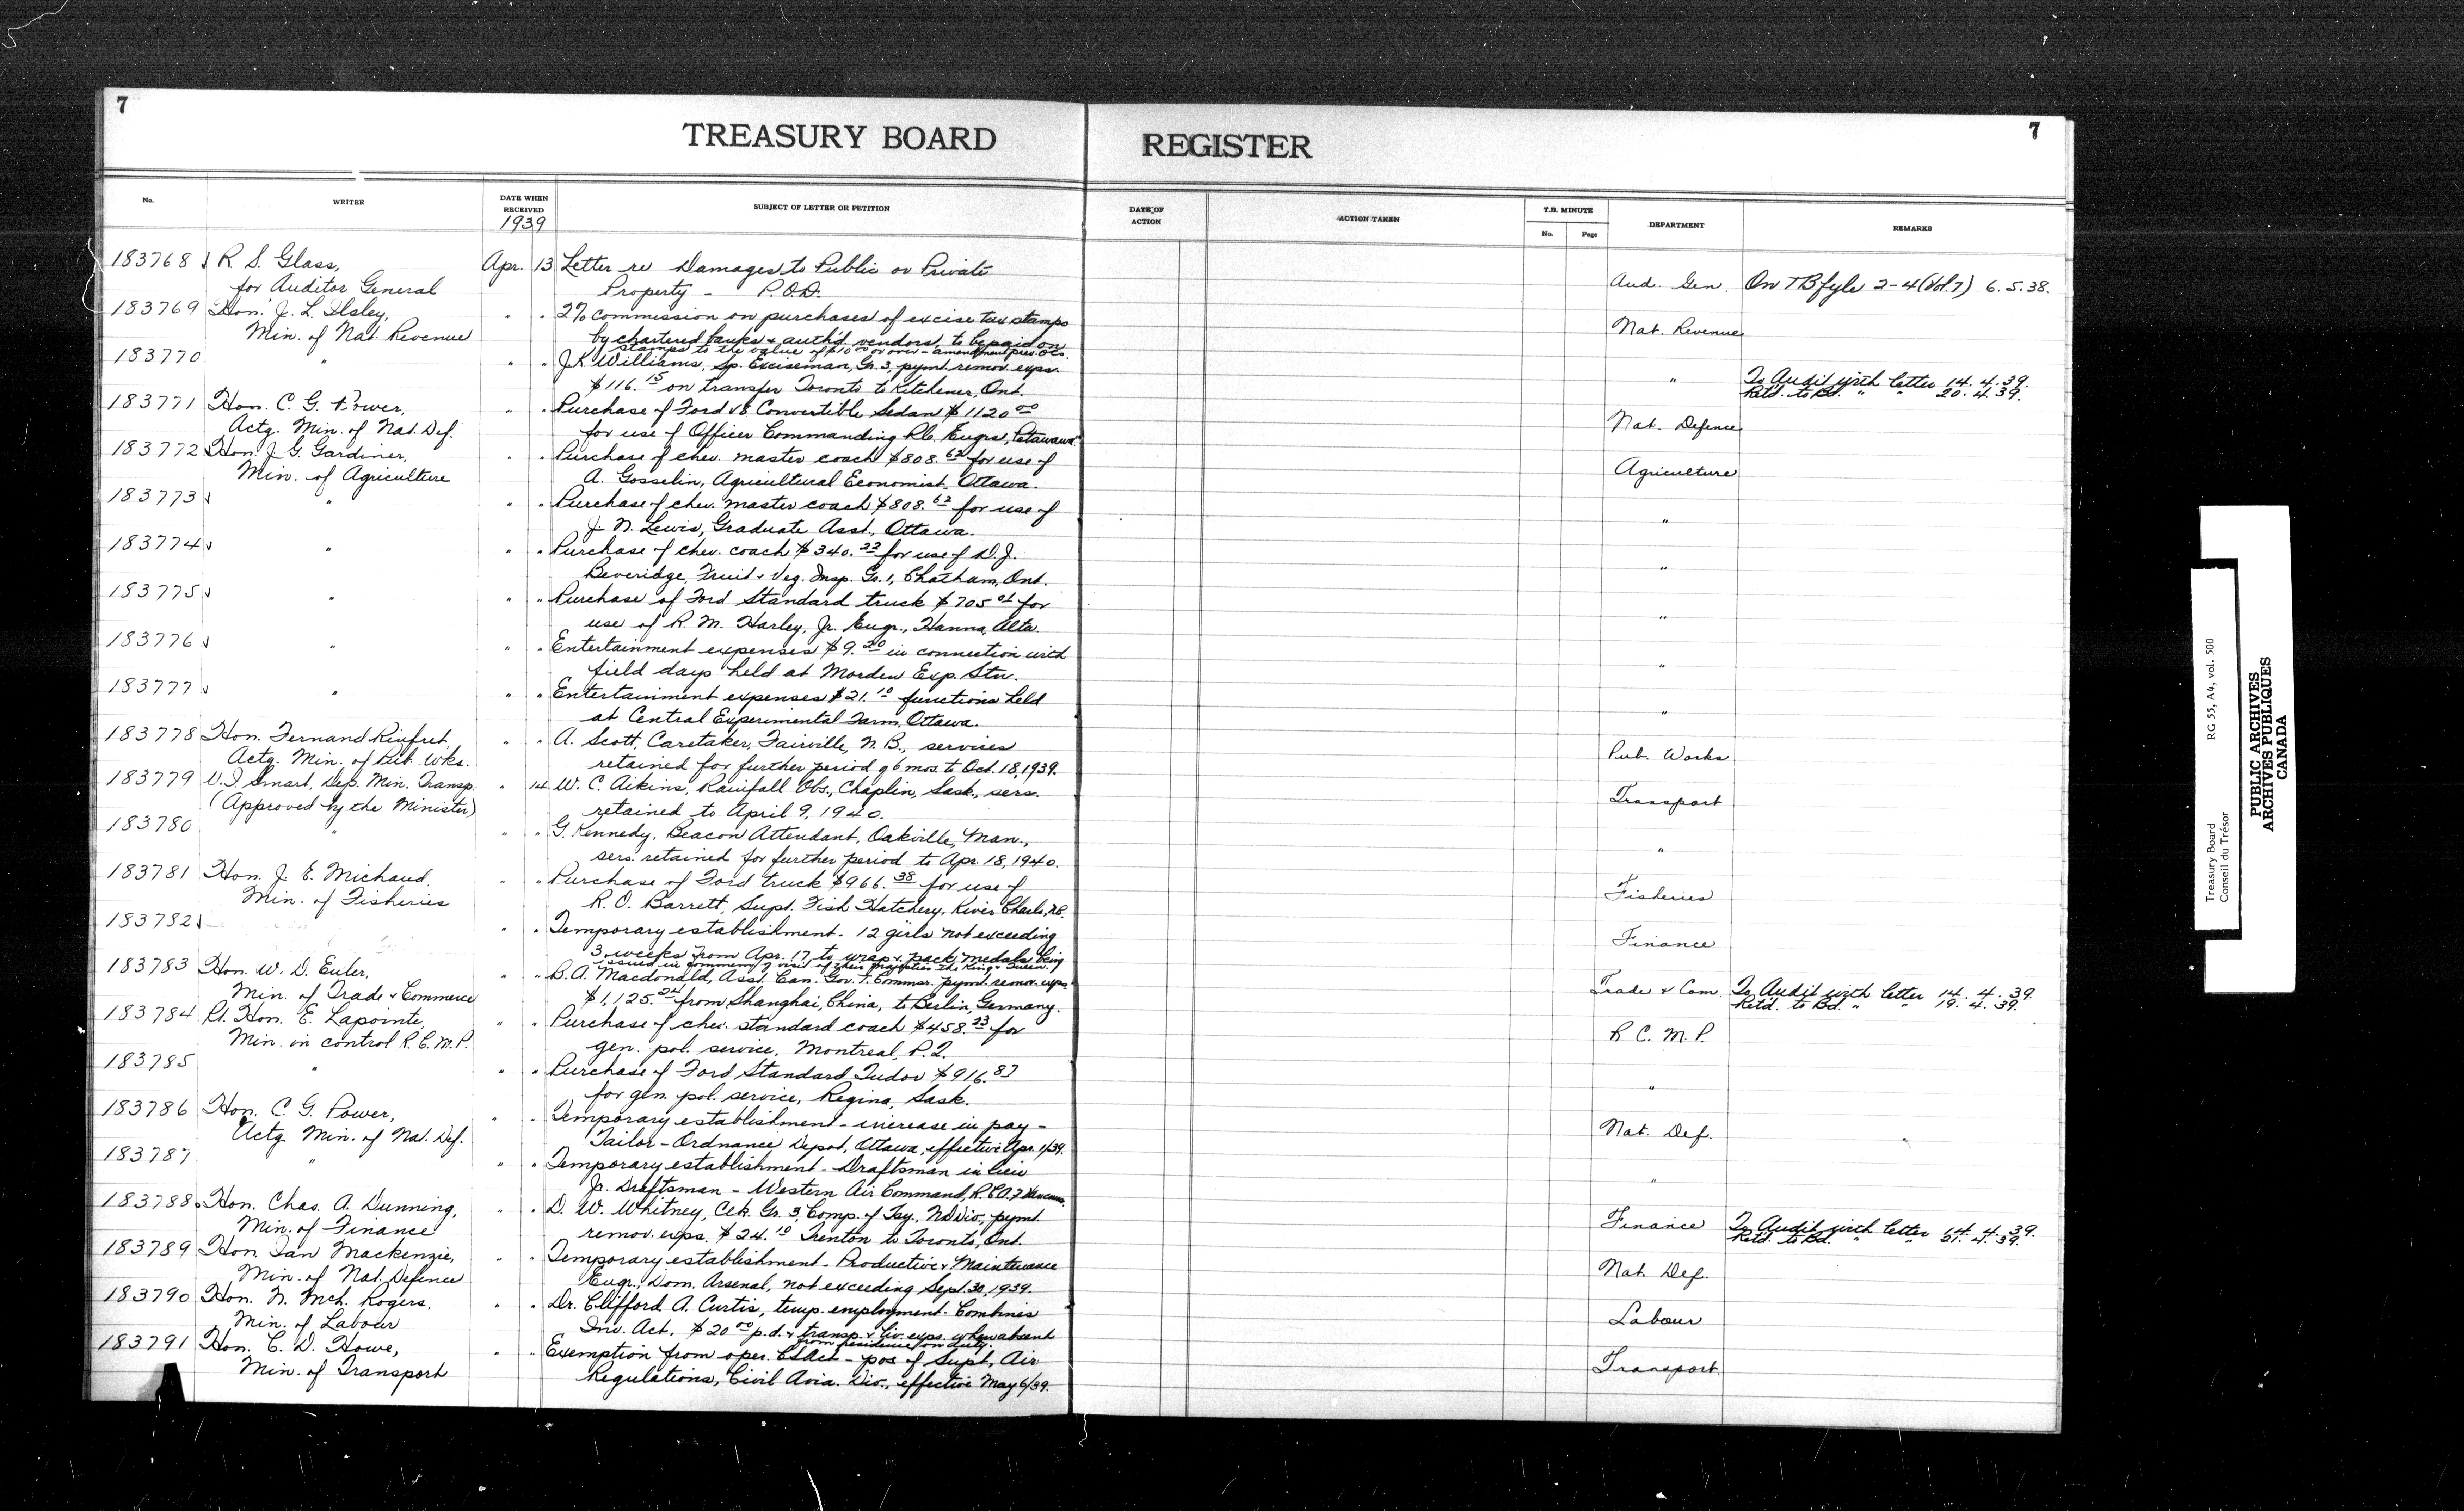 7
TREASURY BOARD REGISTER
7
No. WRITER DATE WHEN RECEIVED SUBJECT OF LETTER OR PETITION DATE OF ACTION ACTION TAKEN T.B. MINUTE No. Page DEPARTMENT REMARKS
1939
183768 R. S. Glass, Apr. 13 Letter re Damages to Public or Private
for Auditor General Property - P.O.D. Aud. Gen. On TB fyle 2-4 (Vol. 7) 6.5.38.
183769 Hon. J. L. Ilsley, " " 2% commission on purchases of excise tax stamps
Min. of Nat. Revenue by chartered banks & auth'd vendors, to be paid on Nat. Revenue
stamps to the value of $10.00 or over - amendment prev. OCs.
183770 " " " J. K. Williams, Sp. Exciseman, Gr. 3, pymt. remov. exps.
$116.15 on transfer Toronto to Kitchener, Ont. " To Audit with letter 14.4.39.
Retd. to Bd. " " 20.4.39.
183771 Hon. C. G. Power, " " Purchase of Ford V8 Convertible Sedan $1120.00
Actg. Min. of Nat. Def. for use of Officer Commanding R.C. Engrs, Petawawa Nat. Defence
183772 Hon. J. G. Gardiner, " " Purchase of chev. master coach $808.62 for use of
Min. of Agriculture A. Gosselin, Agricultural Economist, Ottawa. Agriculture
183773 " " " Purchase of chev. master coach $808.62 for use of
J. N. Lewis, Graduate Asst., Ottawa. "
183774 " " " Purchase of chev. coach $340.22 for use of D. J.
Beveridge, Fruit & Veg. Insp. Gr. 1, Chatham, Ont. "
183775 " " " Purchase of Ford Standard truck $705.01 for
use of R. M. Harley, Jr. Engr., Hanna, Alta. "
183776 " " " Entertainment expenses $9.20 in connection with
field days held at Morden Exp. Stn. "
183777 " " " Entertainment expenses $21.10 functions held
at Central Experimental Farm, Ottawa. "
183778 Hon. Fernand Rinfret, " " A. Scott, Caretaker, Fairville, N.B., services
Actg. Min. of Pub. Wks. retained for further period of 6 mos. to Oct. 18, 1939. Pub. Works
183779 V. I. Smart, Dep. Min. Transp. " 14 W. C. Aikins, Rainfall Obs., Chaplin, Sask., sers.
(Approved by the Minister) retained to April 9, 1940. Transport
183780 " " " G. Kennedy, Beacon Attendant, Oakville, Man.,
sers. retained for further period to Apr. 18, 1940. "
183781 Hon. J. E. Michaud, " " Purchase of Ford truck $966.38 for use of
Min. of Fisheries R. O. Barrett, Supt. Fish Hatchery, River Charlo, N.B. Fisheries
183782 " " Temporary establishment - 12 girls not exceeding
3 weeks from Apr. 17 to wrap & pack medals being Finance
issued in commem. of visit of their Majesties the King & Queen.
183783 Hon. W. D. Euler, " " B. A. Macdonald, Asst. Can. Gov. T. Commr. pymt. remov. exps.
Min. of Trade & Commerce $1,125.24 from Shanghai, China, to Berlin, Germany. Trade & Com. To Audit with letter 14.4.39.
Retd. to Bd. " " 19.4.39.
183784 Rt. Hon. E. Lapointe, " " Purchase of chev. standard coach $458.23 for
Min. in control R.C.M.P. gen. pol. service, Montreal, P.Q. R.C.M.P.
183785 " " " Purchase of Ford Standard Tudor $916.87
for gen. pol. service, Regina, Sask. "
183786 Hon. C. G. Power, " " Temporary establishment - increase in pay -
Actg. Min. of Nat. Def. Tailor - Ordnance Depot, Ottawa, effective Apr. 1/39. Nat. Def.
183787 " " " Temporary establishment - Draftsman in lieu
Jr. Draftsman - Western Air Command, R.C.A.F. "
183788 Hon. Chas. A. Dunning, " " D. W. Whitney, Clk. Gr. 3, Comp. of Tsy., ND Div., pymt.
Min. of Finance remov. exps. $24.10 Trenton to Toronto, Ont. Finance To Audit with letter 14.4.39.
Retd. to Bd. " " 21.4.39.
183789 Hon. Ian Mackenzie, " " Temporary establishment - Productive & Maintenance
Min. of Nat. Defence Engr., Dom. Arsenal, not exceeding Sept. 30, 1939. Nat. Def.
183790 Hon. N. McL. Rogers, " " Dr. Clifford A. Curtis, temp. employment - Combines
Min. of Labour Inv. Act, $20.00 p.d. & transp. & liv. exps. when absent Labour
from residence on duty.
183791 Hon. C. D. Howe, " " Exemption from oper. CS Act - pos. of Supt., Air
Min. of Transport Regulations, Civil Avia. Div., effective May 6/39. Transport
Treasury Board
Conseil du Trésor
RG 55, A4, vol. 500
PUBLIC ARCHIVES
ARCHIVES PUBLIQUES
CANADA